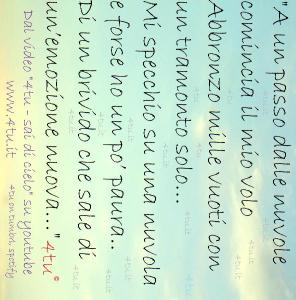 "A un passo dalle nuvole
comincia il mio volo
Abbronzo mille vuoti con
un tramonto solo...
Mi specchio su una nuvola
e forse ho un po' paura..
Di un brivido che sale di
un'emozione nuova..." 4tu°
Dal video "4tu - sai di cielo" su youtube
www.4tu.it 4tu on tumblr, spotify